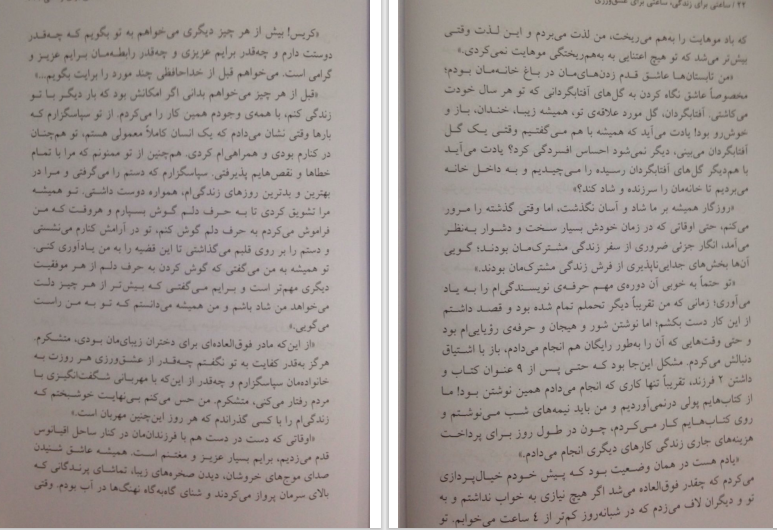 «کریس! بیش از هر چیز دیگری می‌خواهم به تو بگویم که چه‌قدر
دوستت دارم و چه‌قدر برایم عزیزی و چه‌قدر رابطه‌مان برایم عزیز و
گرامی است. می‌خواهم قبل از خداحافظی چند مورد را برایت بگویم...»
«قبل از هر چیز می‌خواهم بدانی اگر امکانش بود که بار دیگر با تو
زندگی کنم، با همه‌ی وجودم همین کار را می‌کردم. از تو سپاسگزارم که
بارها وقتی نشان می‌دادم که یک انسان کاملاً معمولی هستم، تو هم‌چنان
در کنارم بودی و همراهی‌ام کردی. هم‌چنین از تو ممنونم که مرا با تمام
خطاها و نقص‌هایم پذیرفتی. سپاسگزارم که دستم را می‌گرفتی و مرا در
بهترین و بدترین روزهای زندگی‌ام، همواره دوست داشتی. تو همیشه
مرا تشویق کردی تا به حرف دلم گوش بسپارم و هروقت که من
فراموش می‌کردم به حرف دلم گوش کنم، تو در آرامش کنارم می‌نشستی
و دستم را بر روی قلبم می‌گذاشتی تا این قضیه را به من یادآوری کنی.
تو همیشه به من می‌گفتی که گوش کردن به حرف دلم از هر موفقیت
دیگری مهم‌تر است و برایم می‌گفتی که بیش‌تر از هر چیز دلت
می‌خواهد من شاد باشم و من همیشه می‌دانستم که تو به من راست
می‌گویی.»
«از این‌که مادر فوق‌العاده‌ای برای دختران زیبای‌مان بودی، متشکرم.
هرگز به‌قدر کفایت به تو نگفتم چه‌قدر از عشق‌ورزی هر روزت به
خانواده‌مان سپاسگزارم و چه‌قدر از این‌که با مهربانی شگفت‌انگیزی با
مردم رفتار می‌کنی، متشکرم. من حس می‌کنم بی‌نهایت خوشبختم که
زندگی‌ام را با کسی گذراندم که هر روز این‌چنین مهربان است.»
«اوقاتی که دست در دست هم با فرزندان‌مان در کنار ساحل اقیانوس
قدم می‌زدیم، برایم بسیار عزیز و مغتنم است. همیشه عاشق شنیدن
صدای موج‌های خروشان، دیدن صخره‌های زیبا، تماشای پرندگانی که
بالای سرمان پرواز می‌کردند و شنای گاه‌به‌گاه نهنگ‌ها در آب بودم. وقتی
۲۲ / ساعتی برای زندگی، ساعتی برای عشق‌ورزی
که باد موهایت را به‌هم می‌ریخت، من لذت می‌بردم و این لذت وقتی
بیش‌تر می‌شد که تو هیچ اعتنایی به به‌هم‌ریختگی موهایت نمی‌کردی.»
«من تابستان‌ها عاشق قدم زدن‌های‌مان در باغ خانه‌مان بودم؛
مخصوصاً عاشق نگاه کردن به گل‌های آفتابگردانی که تو هر سال خودت
می‌کاشتی. آفتابگردان، گل مورد علاقه‌ی تو، همیشه زیبا، خندان، باز و
خوش‌رو بود! یادت می‌آید که همیشه با هم می‌گفتیم وقتی یک گل
آفتابگردان می‌بینی، دیگر نمی‌شود احساس افسردگی کرد؟ یادت می‌آید
با هم‌دیگر گل‌های آفتابگردان رسیده را می‌چیدیم و به داخل خانه
می‌بردیم تا خانه‌مان را سرزنده و شاد کند؟»
«روزگار همیشه بر ما شاد و آسان نگذشت، اما وقتی گذشته را مرور
می‌کنم، حتی اوقاتی که در زمان خودش بسیار سخت و دشوار به‌نظر
می‌آمد، انگار جزئی ضروری از سفر زندگی مشترک‌مان بودند؛ گویی
آن‌ها بخش‌های جدایی‌ناپذیری از فرش زندگی مشترک‌مان بودند.»
«تو حتماً به خوبی آن دوره‌ی مهم حرفه‌ی نویسندگی‌ام را به یاد
می‌آوری؛ زمانی که من تقریباً دیگر تحملم تمام شده بود و قصد داشتم
از این کار دست بکشم؛ اما نوشتن شور و هیجان و حرفه‌ی رؤیایی‌ام بود
و حتی وقت‌هایی که آن را به‌طور رایگان هم انجام می‌دادم، باز با اشتیاق
دنبالش می‌کردم. مشکل این‌جا بود که حتی پس از ۹ عنوان کتاب و
داشتن ۲ فرزند، تقریباً تنها کاری که انجام می‌دادم همین نوشتن بود! ما
از کتاب‌هایم پولی درنمی‌آوردیم و من باید نیمه‌های شب می‌نوشتم و
روی کتاب‌هایم کار می‌کردم، چون در طول روز برای پرداخت
هزینه‌های جاری زندگی کارهای دیگری انجام می‌دادم.»
«یادم هست در همان وضعیت بود که پیش خودم خیال‌پردازی
می‌کردم که چقدر فوق‌العاده می‌شد اگر هیچ نیازی به خواب نداشتم و به
تو و دیگران لاف می‌زدم که در شبانه‌روز کم‌تر از ۴ ساعت می‌خوابم. تو